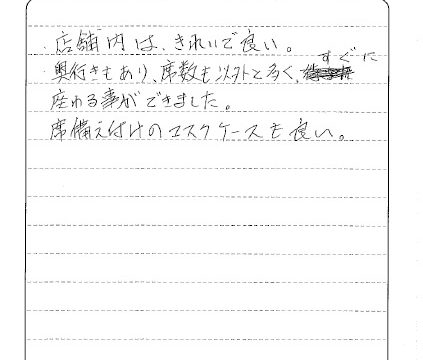 店舗内は、きれいで良い。
奥行きもあり、席数も以外と多く、すぐに
座わる事ができました。
席備え付けのマスクケースも良い。